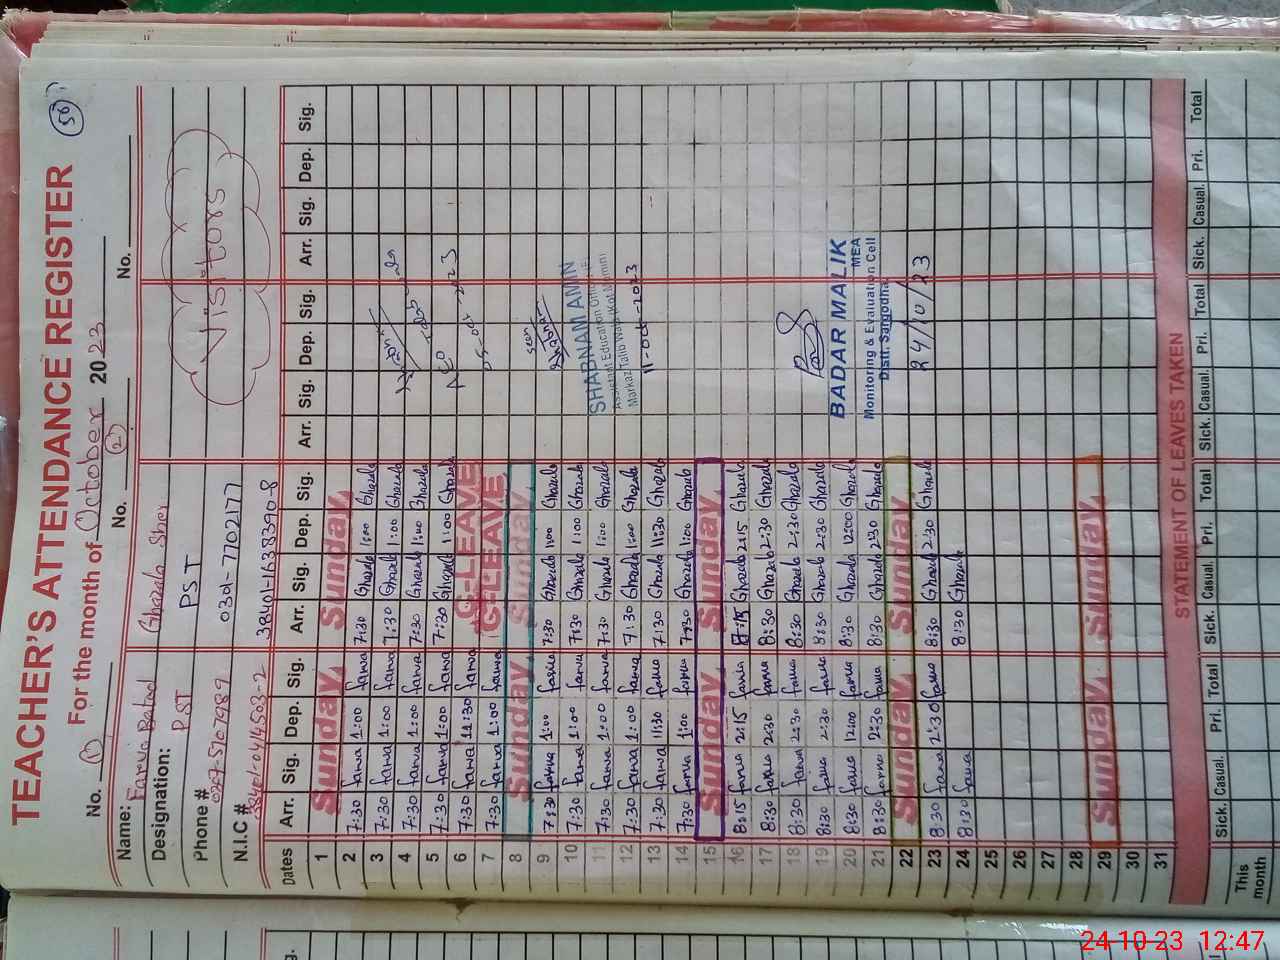 TEACHER'S ATTENDANCE REGISTER
56
For the month of October 2023
No. 1 No. 2 No.
Name: Farwa Batool Ghazala Sher
Designation: PST PST
Visitors
Phone #
N.I.C #
Dates Arr. Sig. Dep. Sig. Arr. Sig. Dep. Sig. Arr. Sig. Dep. Sig. Arr. Sig. Dep. Sig.
1 Sunday Sunday
2 7:30 farwa 1:00 farwa 7:30 Ghazala 1:00 Ghazala
3 7:30 farwa 1:00 farwa 7:30 Ghazala 1:00 Ghazala
4 7:30 farwa 1:00 farwa 7:30 Ghazala 1:00 Ghazala
5 7:30 farwa 1:00 farwa 7:30 Ghazala 11:00 Ghazala
6 7:30 farwa 11:30 farwa C-LEAVE
7 7:30 farwa 1:00 farwa C-LEAVE
8 Sunday Sunday
9 7:30 farwa 1:00 farwa 7:30 Ghazala 1:00 Ghazala
seen
10 7:30 farwa 1:00 farwa 7:30 Ghazala 1:00 Ghazala
11 7:30 farwa 1:00 farwa 7:30 Ghazala 1:00 Ghazala
SHABNAM AMIN
Assistant Education Officer
12 7:30 farwa 1:00 farwa 7:30 Ghazala 1:00 Ghazala
Markaz Talib Wala (Kot Momin)
11-oct-2023
13 7:30 farwa 11:30 farwa 7:30 Ghazala 11:30 Ghazala
14 7:30 farwa 1:00 farwa 7:30 Ghazala 1:00 Ghazala
15 Sunday Sunday
16 8:15 farwa 2:15 farwa 8:15 Ghazala 2:15 Ghazala
17 8:30 farwa 2:30 farwa 8:30 Ghazala 2:30 Ghazala
18 8:30 farwa 2:30 farwa 8:30 Ghazala 2:30 Ghazala
19 8:30 farwa 2:30 farwa 8:30 Ghazala 2:30 Ghazala
20 8:30 farwa 12:00 farwa 8:30 Ghazala 12:00 Ghazala
BADAR MALIK
MEA
21 8:30 farwa 2:30 farwa 8:30 Ghazala 2:30 Ghazala
Monitoring & Evaluation Cell
Distt. Sargodha
22 Sunday Sunday
23 8:30 farwa 2:30 farwa 8:30 Ghazala 2:30 Ghazala
24/10/23
24 8:30 farwa 8:30 Ghazala
25
26
27
28
29 Sunday Sunday
30
31
STATEMENT OF LEAVES TAKEN
Sick. Casual. Pri. Total Sick. Casual. Pri. Total Sick. Casual. Pri. Total Sick. Casual. Pri. Total
This month
Sig.
24-10-23 12:47